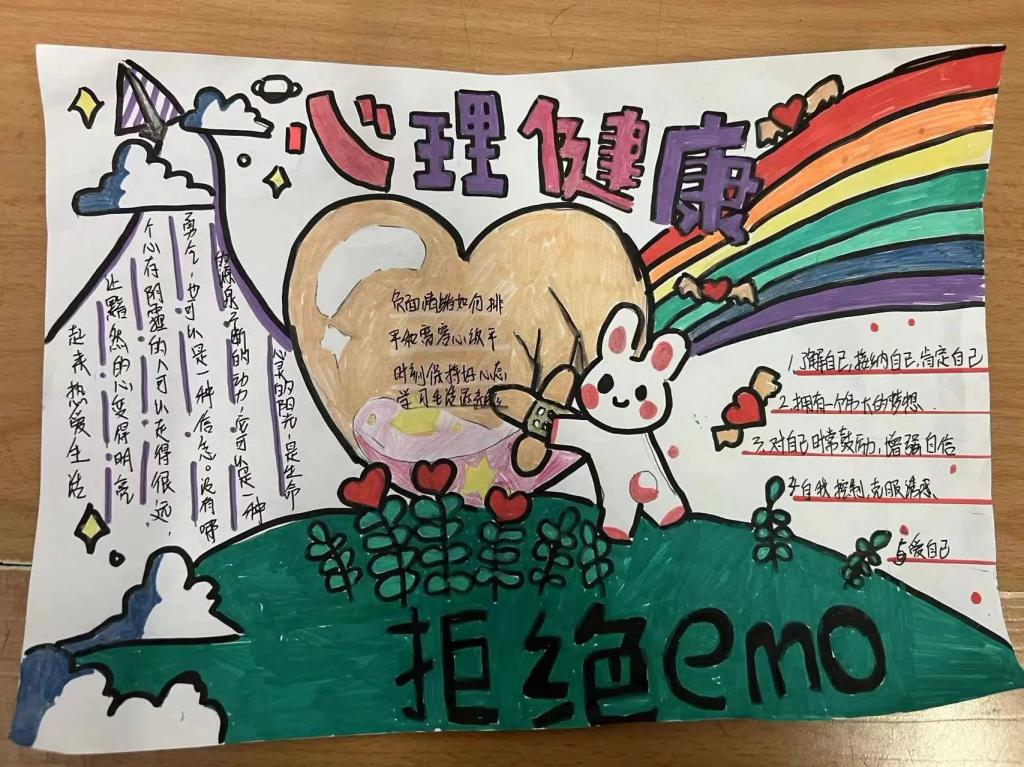 心理健康
心灵的阳光，是生命
的源泉不断的动力，它可以是一种
勇气，也可以是一种信念。没有哪
个心存阴霾的人可以走得很远，
让黯然的心变得明亮
起来热爱生活
负面情绪如何排
平和需要心放平
时刻保持好心态
1.了解自己，接纳自己，肯定自己
2.拥有一个伟大的梦想
3.对自己时常鼓励，增强自信
4.自我控制，克服
5.爱自己
拒绝emo